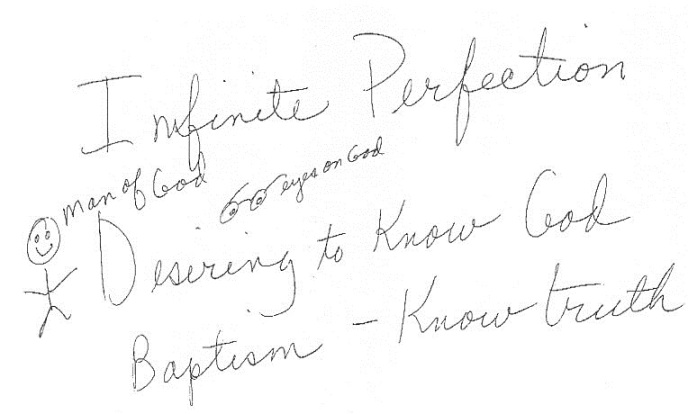 Infinite Perfection
man of God
eyes on God
Desiring to Know God
Baptism - Know truth